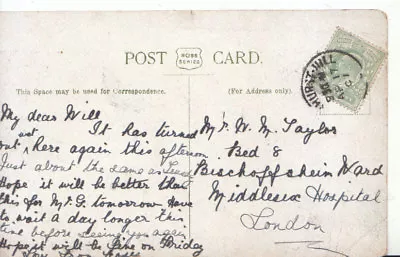 POST CARD.
ROSS SERIES
This Space may be used for Correspondence.
HURST-HILL
My dear Will
It has turned
out wet here again this afternoon
Just about the same as
Hope it will be better than
this for Mr G. tomorrow. Have
to wait a day longer this
time before seeing you again
Hope it will be fine on Friday
Mr W. M. Taylor
Bed 8
Bischoffshein Ward
Middlesex Hospital
London